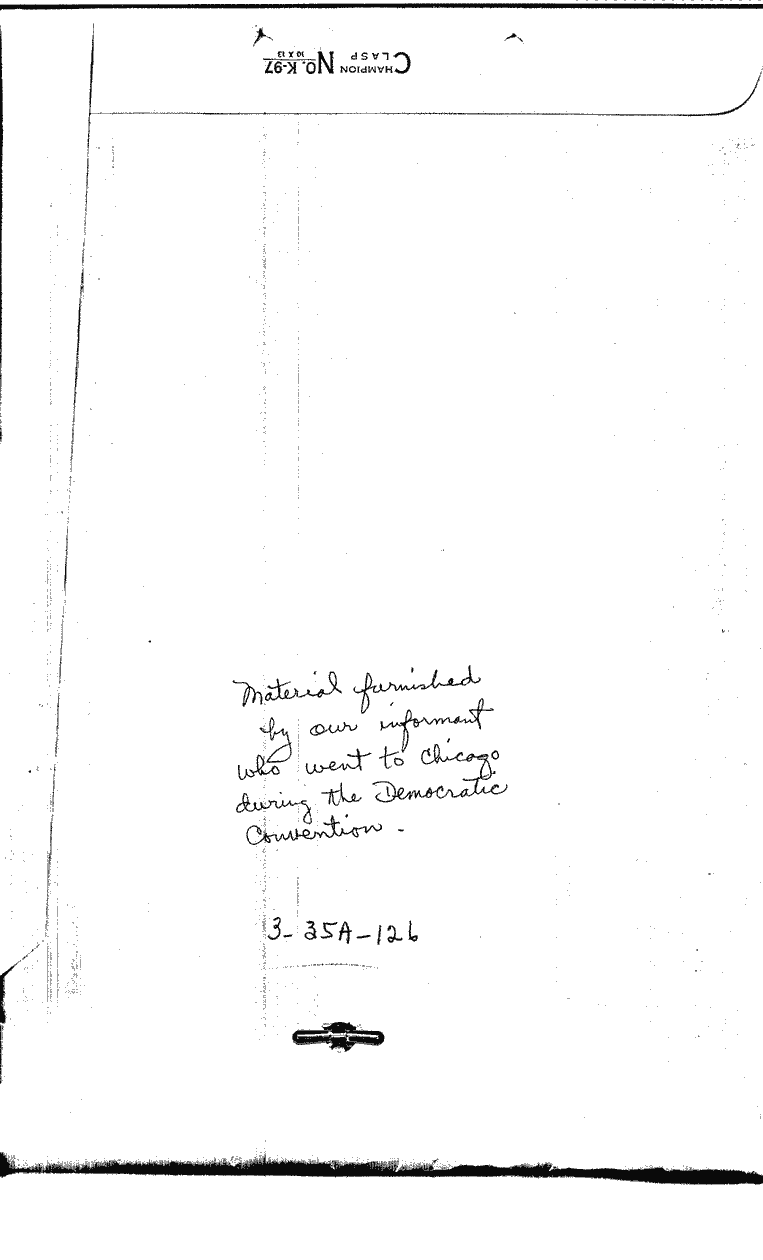 CHAMPION CLASP No. K-97 10 X 13
Material furnished
by our informant
who went to Chicago
during the Democratic
Convention -
3-35A-126